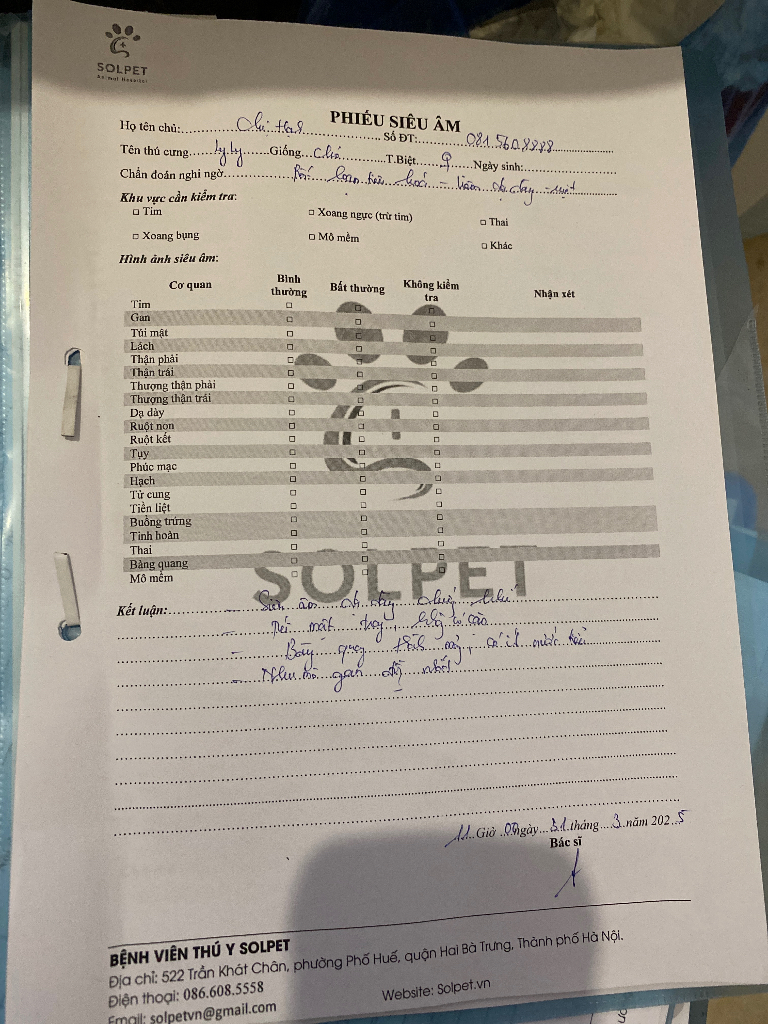 SOLPET
Animal Hospital
PHIẾU SIÊU ÂM
Họ tên chủ: Số ĐT: 0815608888
Tên thú cưng Ly Ly Giống Chó T.Biệt ♀ Ngày sinh:
Chẩn đoán nghi ngờ Rối loạn tiêu hoá - Viêm dạ dày - ruột
Khu vực cần kiểm tra:
□ Tim □ Xoang ngực (trừ tim) □ Thai
□ Xoang bụng □ Mô mềm □ Khác
Hình ảnh siêu âm:
Cơ quan Bình thường Bất thường Không kiểm tra Nhận xét
Tim □ □ □
Gan □ □ □
Túi mật □ □ □
Lách □ □ □
Thận phải □ □ □
Thận trái □ □ □
Thượng thận phải □ □ □
Thượng thận trái □ □ □
Dạ dày □ □ □
Ruột non □ □ □
Ruột kết □ □ □
Tụy □ □ □
Phúc mạc □ □ □
Hạch □ □ □
Tử cung □ □ □
Tiền liệt □ □ □
Buồng trứng □ □ □
Tinh hoàn □ □ □
Thai □ □ □
Bàng quang □ □ □
Mô mềm □ □ □
SOLPET
Kết luận: - Siêu âm dạ dày chứa khí
- Túi mật trong, không có cặn
- Bàng quang thành mỏng, có ít nước tiểu
- Nhu mô gan đồng nhất
11 Giờ 00 ngày 31 tháng 3 năm 2025
Bác sĩ
BỆNH VIỆN THÚ Y SOLPET
Địa chỉ: 522 Trần Khát Chân, phường Phố Huế, quận Hai Bà Trưng, Thành phố Hà Nội.
Điện thoại: 086.608.5558 Website: Solpet.vn
Email: solpetvn@gmail.com